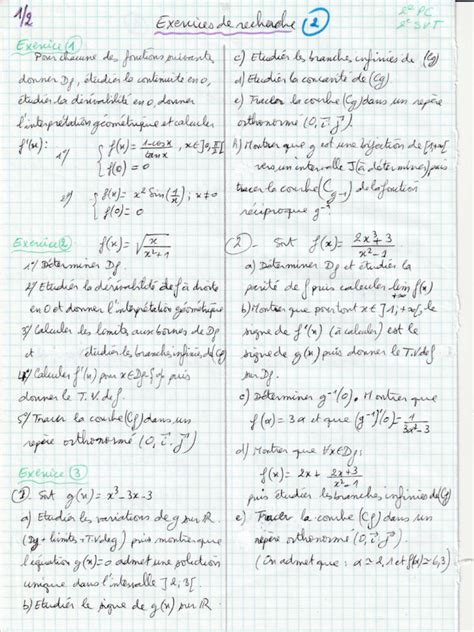 1/2
Exercices de recherche (2)
2° PC
2° SVT
Exercice (1)
Pour chacune des fonctions suivantes,
donner Df, étudier la continuité en 0,
étudier la dérivabilité en 0, donner
l'interprétation géométrique et calculer
f'(x):
1°/ { f(x) = (1-cosx)/(tanx), x∈]0,π/2[
f(0) = 0
2°/ { f(x) = x² sin(1/x); x≠0
f(0) = 0
Exercice (2) f(x) = √(x/(x²+1))
1°/ Déterminer Df
2°/ Etudier la dérivabilité de f à droite
en 0 et donner l'interprétation géométrique
3°/ Calculer les limites aux bornes de Df
et étudier les branches infinies de Cf
4°/ Calculer f'(x) pour x∈Df-{0} puis
donner le T.V. de f.
5°/ Tracer la courbe (Cf) dans un
repère orthonormé (O, i⃗, j⃗)
Exercice (3)
(1) Soit g(x) = x³-3x-3
a) Etudier les variations de g sur ℝ.
(Dg + limites + T.V de g) puis montrer que
l'équation g(x)=0 admet une solution
unique dans l'intervalle ]2,3[.
b) Etudier le signe de g(x) sur ℝ.
c) Etudier les branches infinies de (Cg)
d) Etudier la concavité de (Cg)
e) Tracer la courbe (Cg) dans un repère
orthonormé (O, i⃗, j⃗).
h) Montrer que g est une bijection de [1,+∞[
vers un intervalle J (à déterminer) puis
tracer la courbe (Cg⁻¹) de la fonction
réciproque g⁻¹
(2) - Soit f(x) = (2x³+3)/(x²-1)
a) Déterminer Df et étudier la
parité de f puis calculer lim f(x)
+∞
b) Montrer que pour tout x∈]1,+∞[, le
signe de f'(x) (à calculer) est le
signe de g(x) puis donner le T.V de f
sur Df.
c) Déterminer g⁻¹(0). Montrer que
f(α) = 3α et que (g⁻¹)'(0) = 1/(3α²-3)
d) Montrer que ∀x∈Df:
f(x) = 2x + (2x+3)/(x²-1)
puis étudier les branches infinies de (Cf)
e) Tracer la courbe (Cf) dans un
repère orthonormé (O, i⃗, j⃗).
(On admet que: α≃2,1 et f(α)≃6,3)